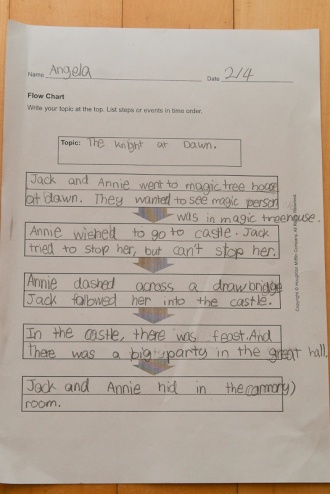 Name Angela Date 2/4
Flow Chart
Write your topic at the top. List steps or events in time order.
Topic: The knight at Dawn.
Jack and Annie went to magic tree house
at dawn. They wanted to see magic person
was in magic treehouse.
Annie wished to go to castle. Jack
tried to stop her, but can't stop her.
Annie dashed across a drawbridge
Jack followed her into the castle.
In the castle, there was feast. And
there was a big party in the great hall.
Jack and Annie hid in the (armory)
room.